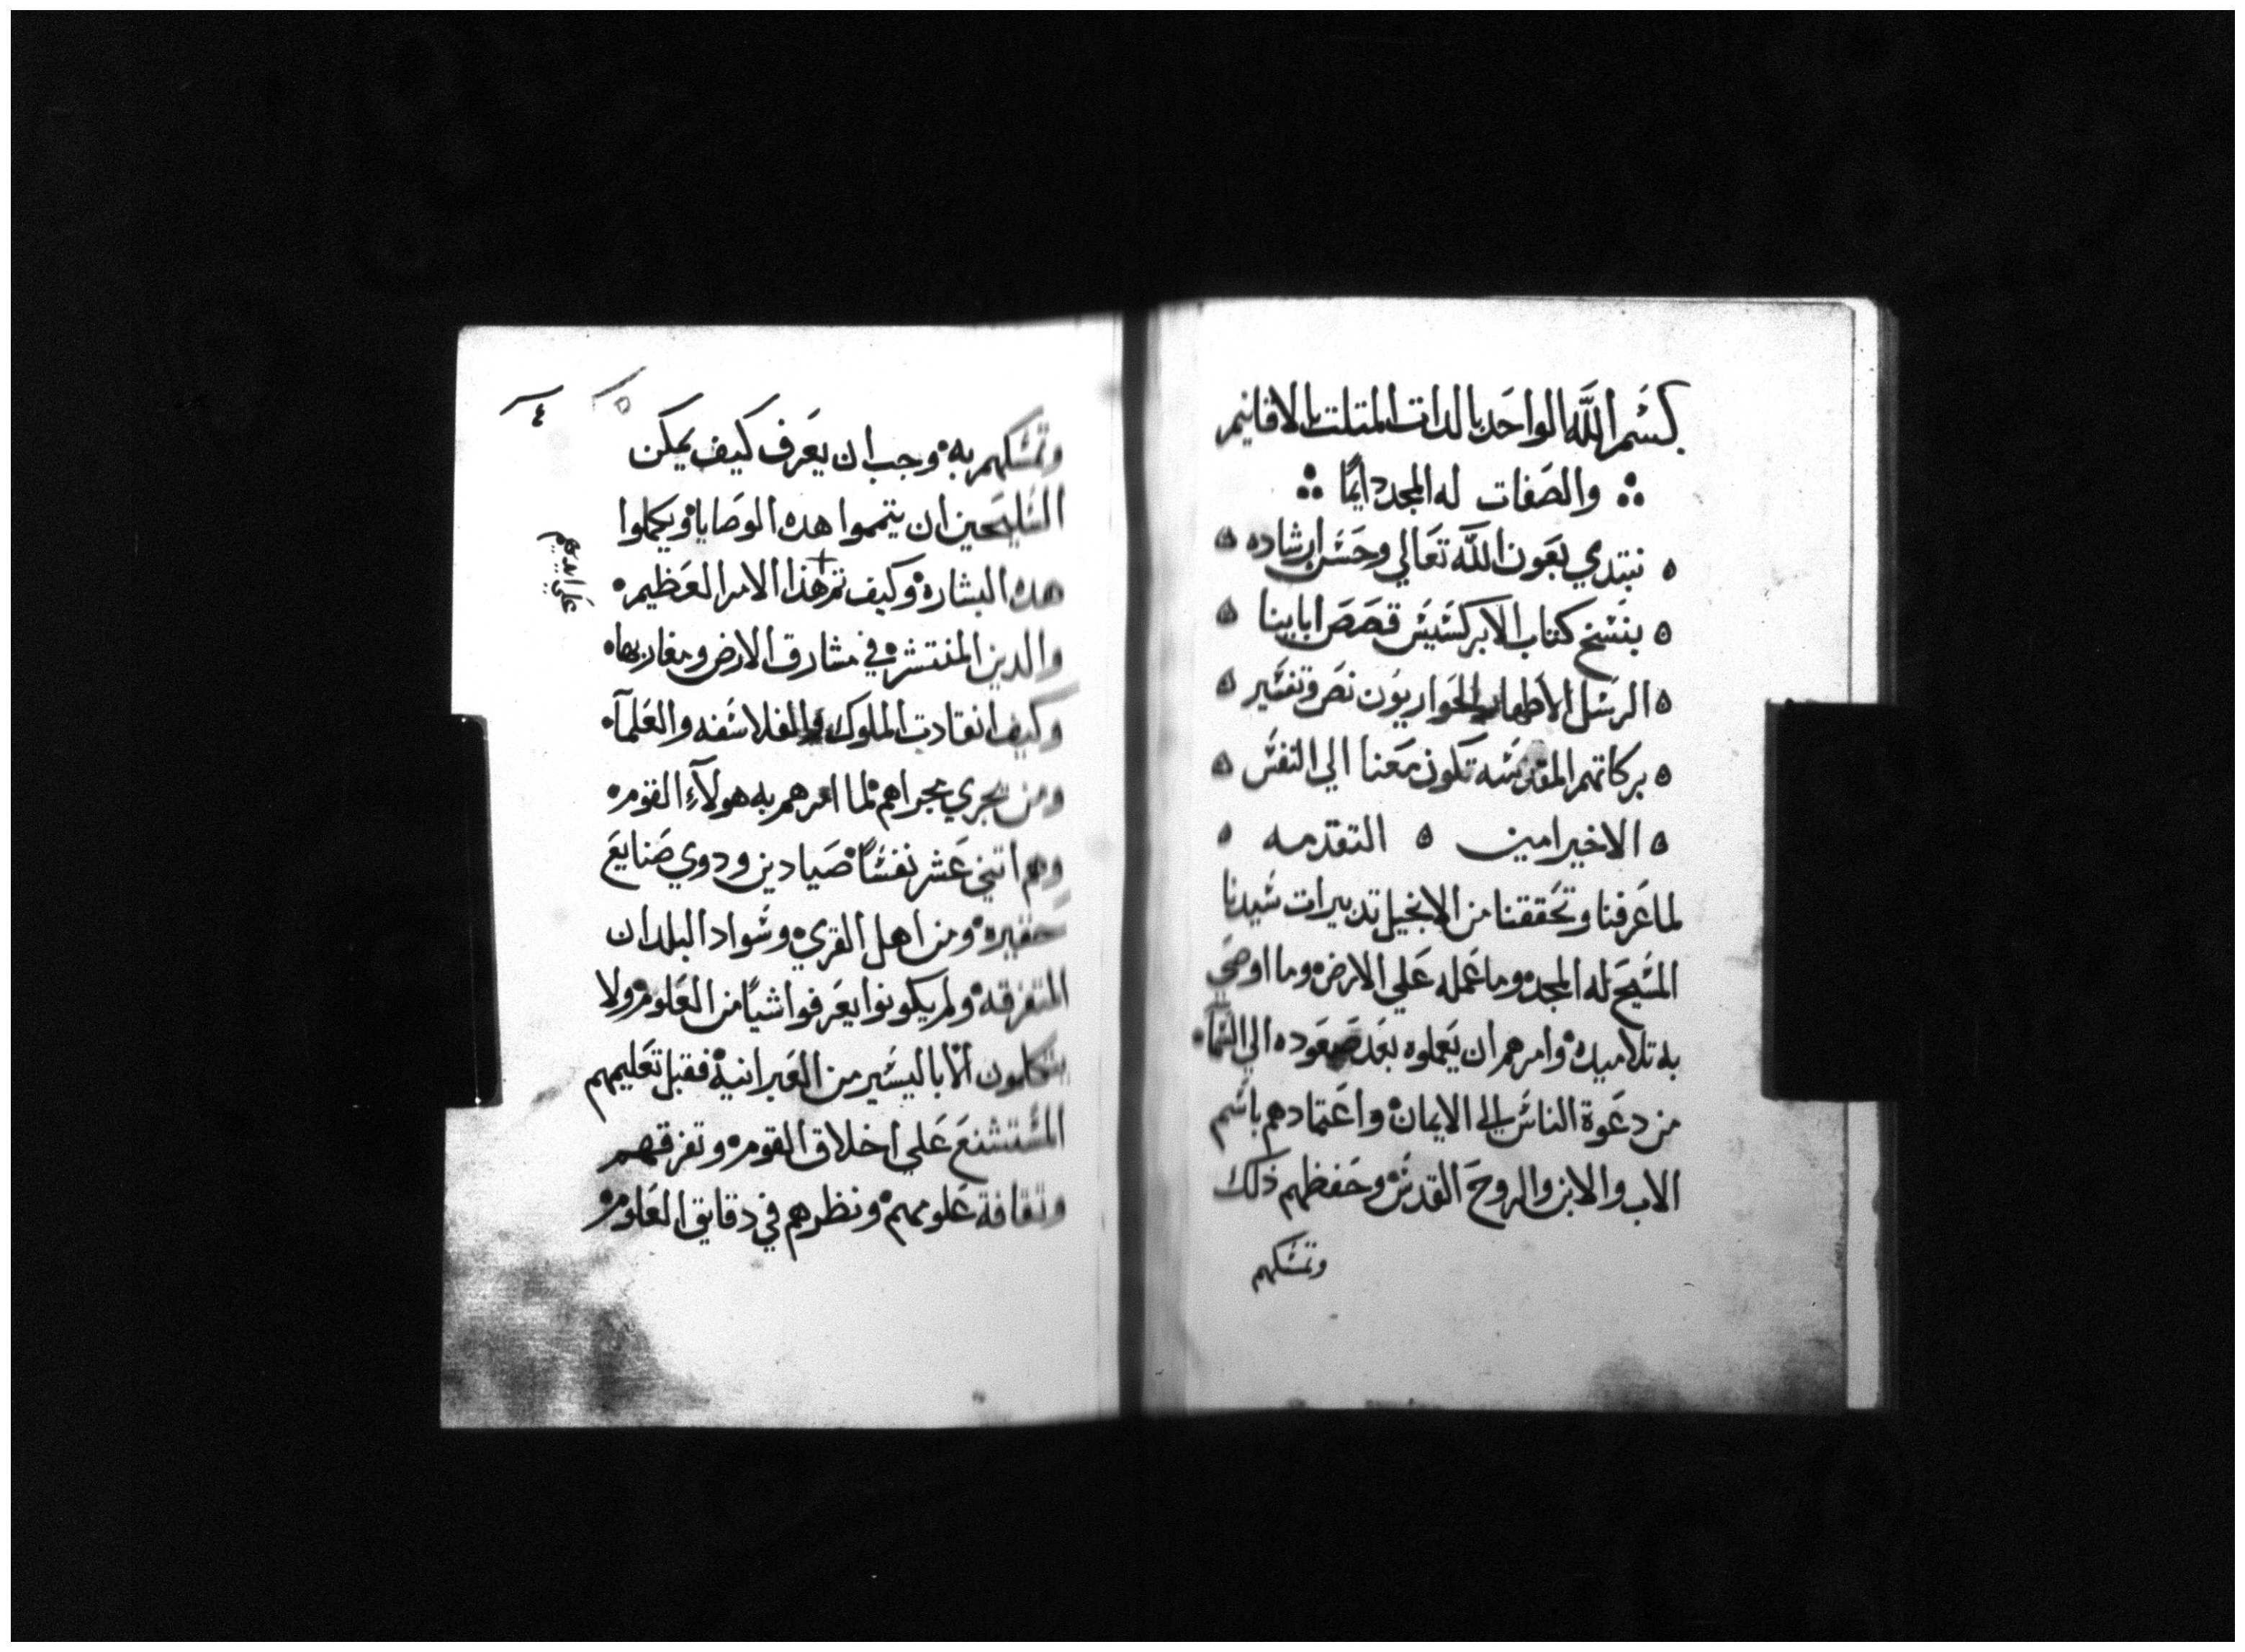 بسم الله الواحد بالدات المتلت بالاقانيم
والصفات له المجد دايمًا
نبتدي بعون الله تعالي وحسن ارشاده
بنسخ كتاب الابركسيس قصص ابايينا
الرسل الاطهار الحواريون نص وتفسير
بركاتهم المقدسه تكون معنا الي النفس
الاخير امين ه التقدمه
لما عرفنا وتحققنا من الانجيل تدبيرات سيدنا
المسيح له المجد وما عمله علي الارض وما اوصي
به تلاميده وامرهم ان يعملوه بعد صعوده الي السماء
من دعوة الناس الي الايمان واعتمادهم باسم
الاب والابن والروح القدس وحفظهم ذلك
وتمسكهم
٥ ٤
وتمسكهم به وجب ان يعرف كيف يمكن
السليحين ان يتمموا هده الوصايا ويكملوا
هده البشاره وكيف تم هذا الامر العظيم
والدين المنتشره في مشارق الارض ومغاربها
وكيف انقادت الملوك والفلاسفه والعلمآ
ومن يجري مجراهم لما امرهم به هولآء القوم
وهم اتني عشر نفسًا صيادين ودوي صنايع
حقيره ومن اهل القري وسواد البلدان
المتفرقه ولم يكونوا يعرفوا شيًا من العلوم ولا
يتكلمون الا باليسير من العبرانية فقبل تعليمهم
المستشنع علي اخلاق القوم وتفرقهم
وتقافة علومهم ونظرهم في دقايق العلوم